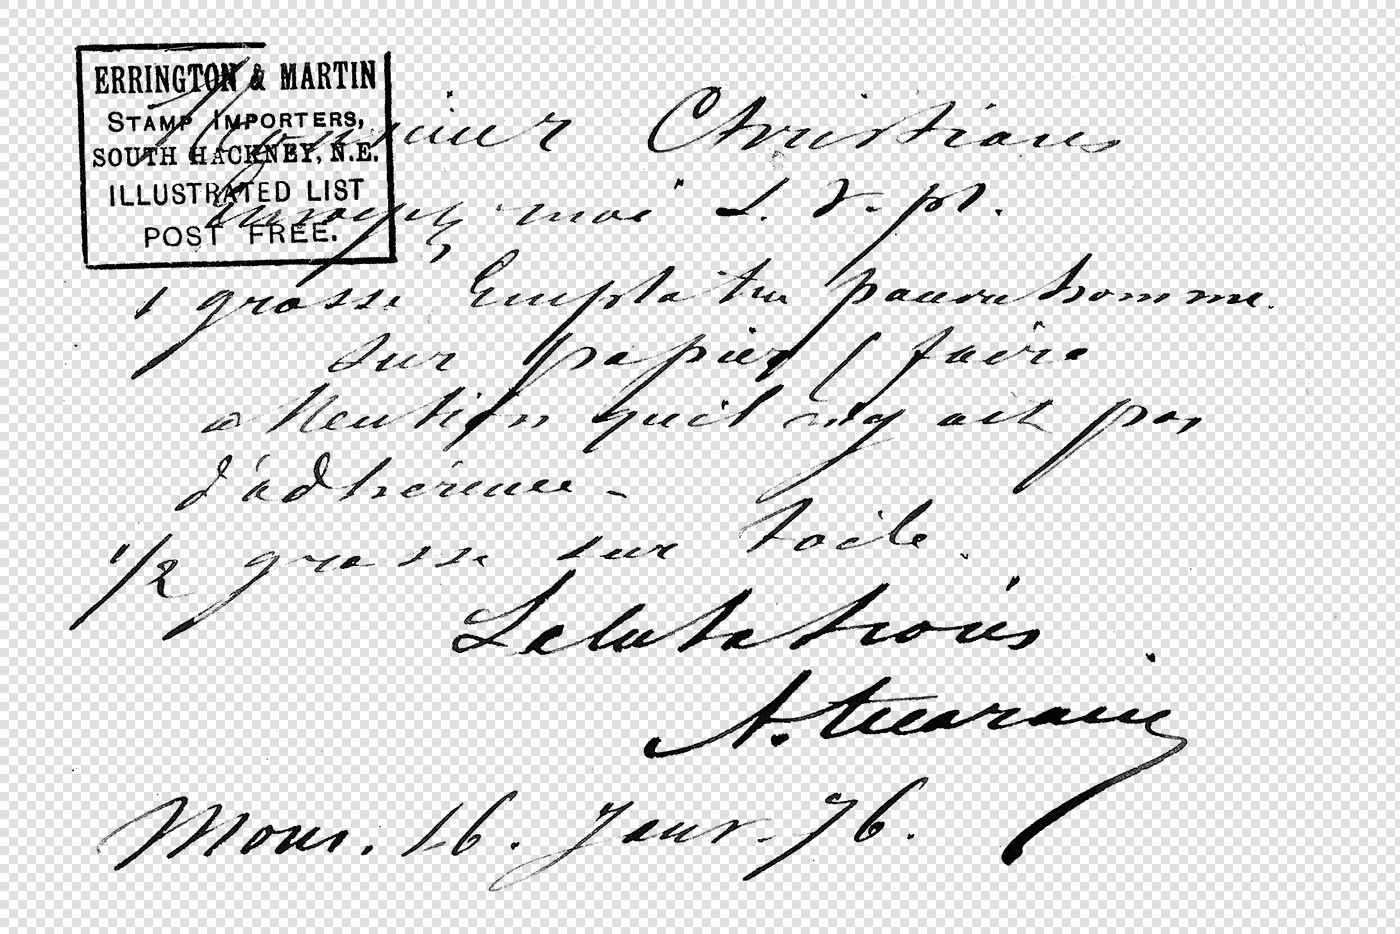 ERRINGTON & MARTIN
STAMP IMPORTERS,
SOUTH HACKNEY, N.E.
ILLUSTRATED LIST
POST FREE.
Monsieur Christiaens
Envoyez moi S. V. pl.
1 grosse Emplatre pauvre homme.
sur papier ( faire
attention qu'il n'y ait pas
d'adhérence -
1/2 grosse sur toile.
Salutations
A.
Mons. 16. Janv. 76.